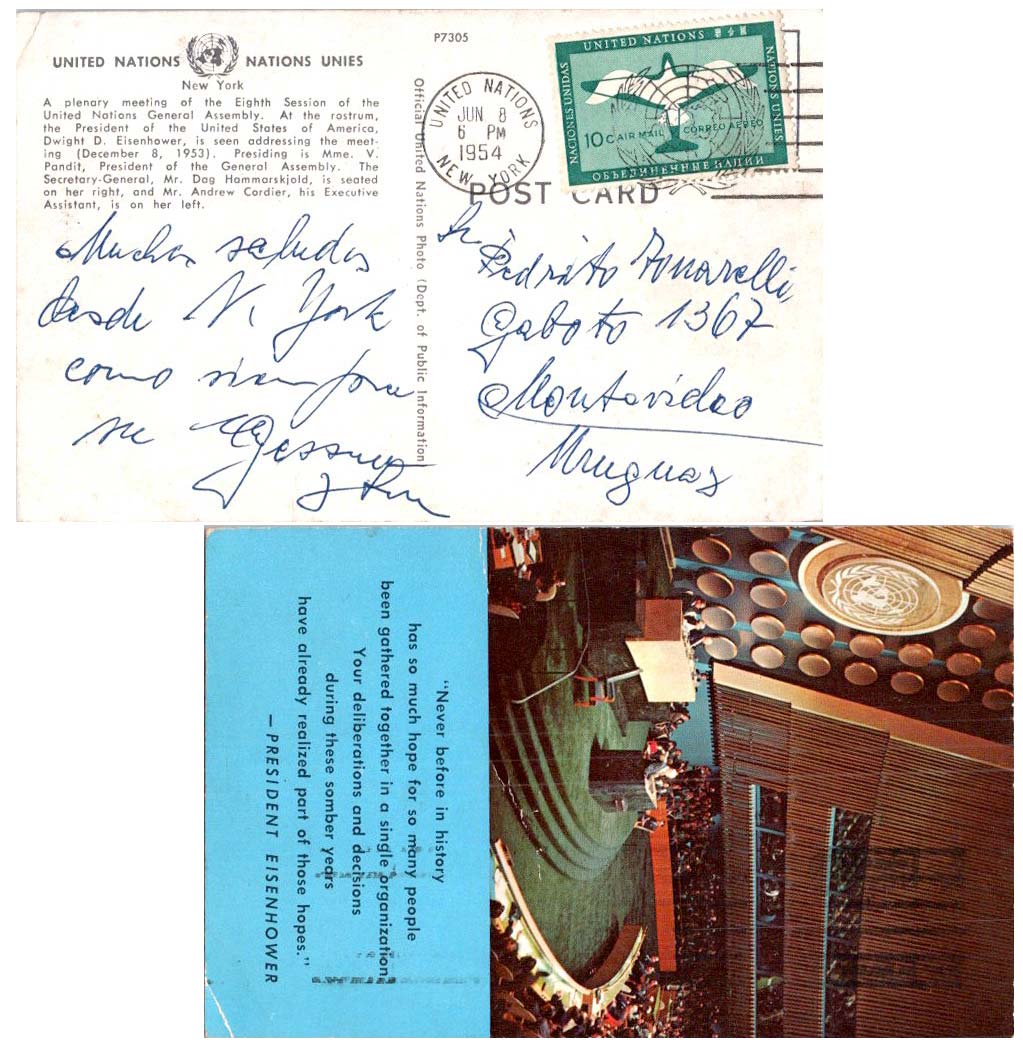 UNITED NATIONS NATIONS UNIES
New York
A plenary meeting of the Eighth Session of the
United Nations General Assembly. At the rostrum,
the President of the United States of America,
Dwight D. Eisenhower, is seen addressing the meet-
ing (December 8, 1953). Presiding is Mme. V.
Pandit, President of the General Assembly. The
Secretary-General, Mr. Dag Hammarskjold, is seated
on her right, and Mr. Andrew Cordier, his Executive
Assistant, is on her left.
Muchos saludos
desde N. York
como siempre
su
P7305
Official United Nations Photo (Dept. of Public Information
UNITED NATIONS
JUN 8
6 PM
1954
NEW YORK
UNITED NATIONS
NACIONES UNIDAS
NATIONS UNIES
10C AIR MAIL CORREO AEREO
ОБЪЕДИНЕННЫЕ НАЦИИ
POST CARD
Sr.
Pedrito Tonarelli
Gaboto 1367
Montevideo
Uruguay
"Never before in history
has so much hope for so many people
been gathered together in a single organization
Your deliberations and decisions
during these somber years
have already realized part of those hopes."
—PRESIDENT EISENHOWER